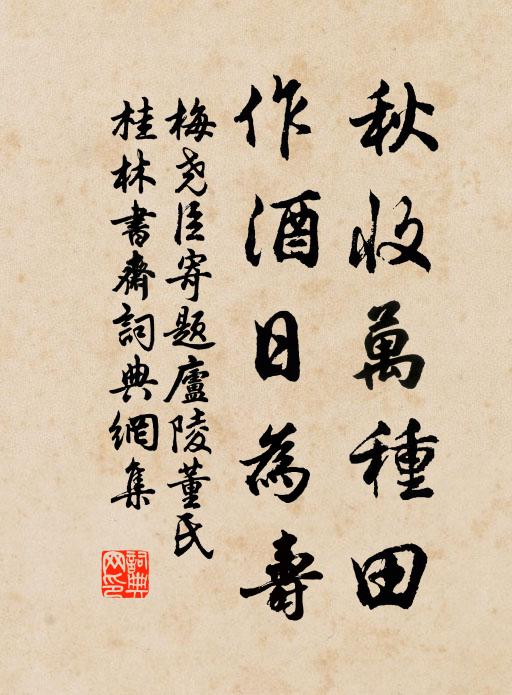 秋收萬種田
作酒日為壽
梅堯臣寄題廬陵董氏
桂林書齋詞典網集
詞典網印